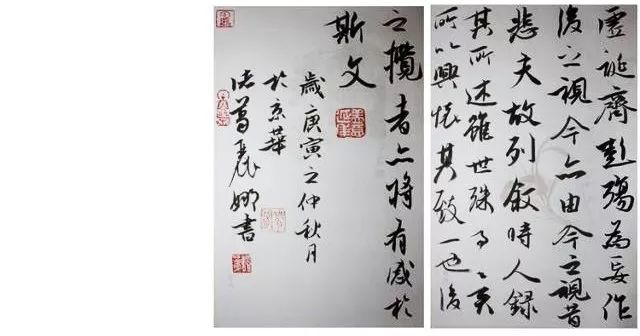 虛誕齊彭殤為妄作
後之視今亦由今之視昔
悲夫故列敘時人錄
其所述雖世殊事異
所以興懷其致一也後
之攬者亦將有感於
斯文
歲庚寅之仲秋月
於京華
诸葛麗娜書